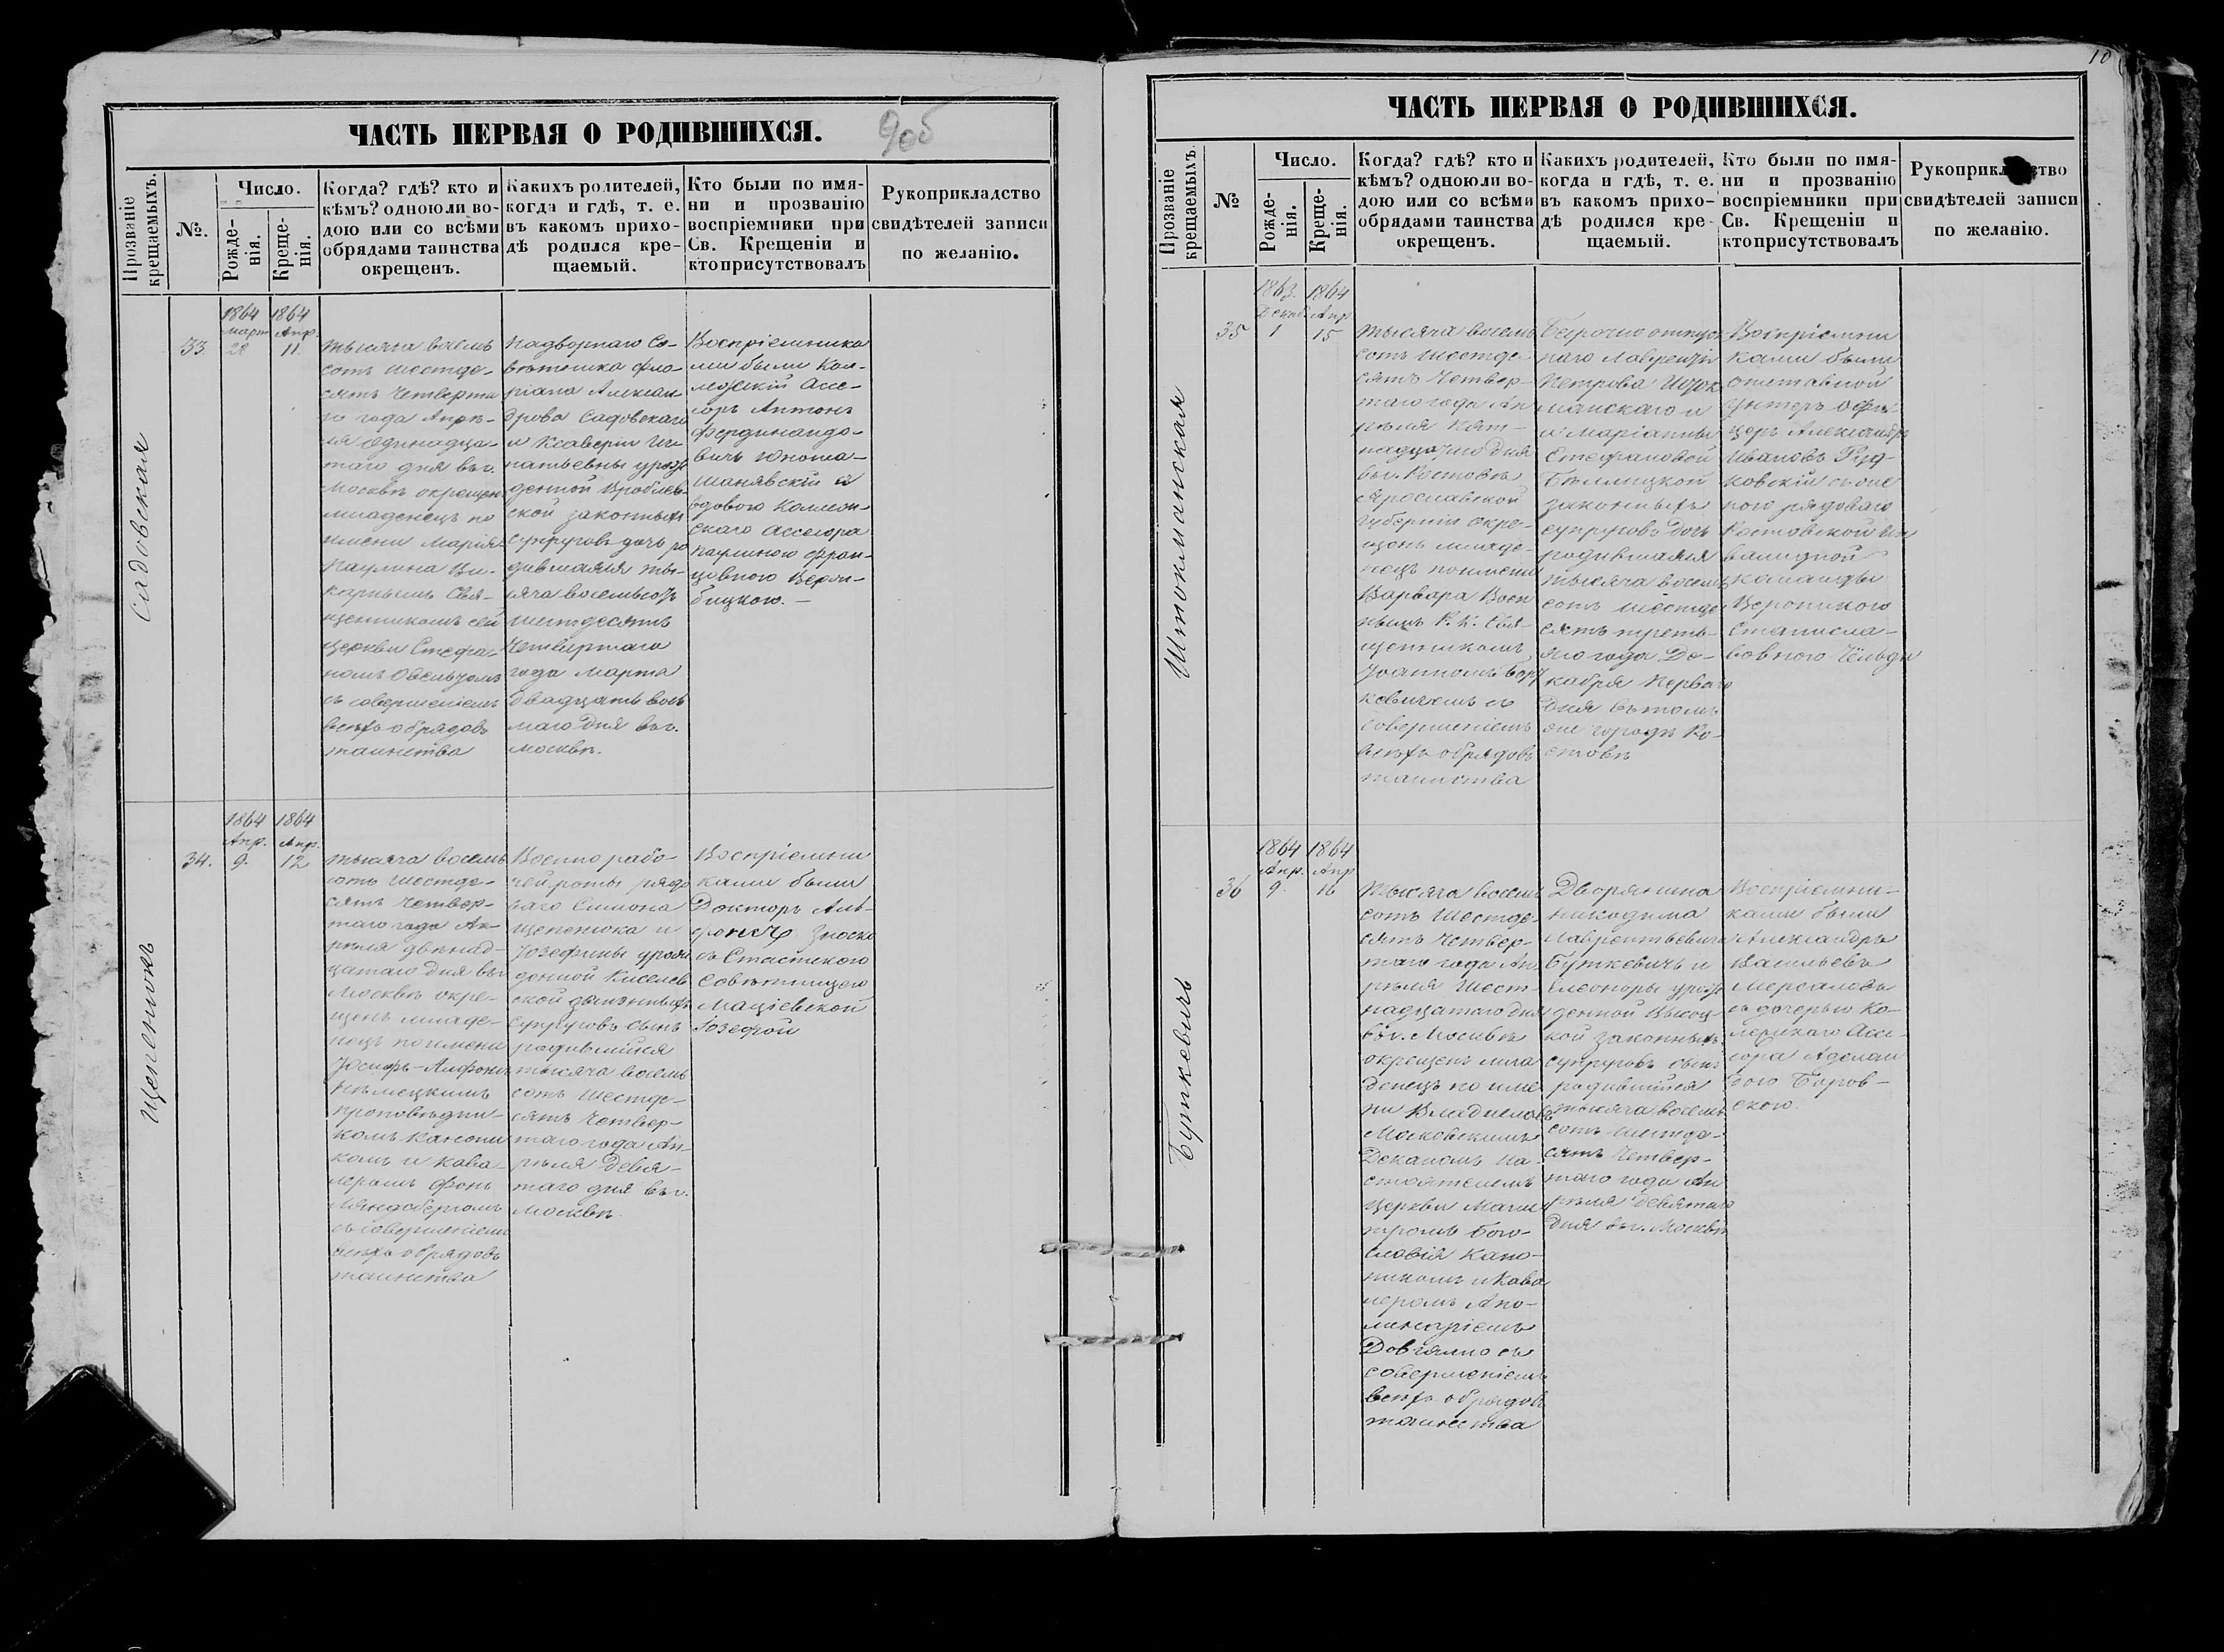 ЧАСТЬ ПЕРВАЯ О РОДИВШИХСЯ.
9об
Прозваніе крещаемыхъ.
№.
Число.
Рожде-
нія.
Креще-
нія.
Когда? гдѣ? кто и
кѣмъ? одною ли во-
дою или со всѣми
обрядами таинства
окрещенъ.
Какихъ родителей,
когда и гдѣ, т. е.
въ какомъ прихо-
дѣ родился кре-
щаемый.
Кто были по имя-
ни и прозванію
воспріемники при
Св. Крещеніи и
кто присутствовалъ
Рукоприкладство
свидѣтелей записи
по желанію.
Садовская
33.
1864
март
28
1864
Апр.
11.
тысяча восемь
сотъ шестьде-
сятъ четверта
го года Апрѣ-
ля одинадца-
таго дня въ г.
Москвѣ окрещен
младенецъ по
имени Марія
Паулина Ви-
карнымъ Свя-
щенникомъ сей
церкви Стефа-
номъ
съ совершеніемъ
всѣхъ обрядовъ
таинства
Надворнаго Со-
вѣтника Фло-
ріана Алексан-
дрова Садовскаго
и Ксаверіи Иг-
натьевны урож
денной Вроблев-
ской законныхъ
супруговъ дочь ро
дившаяся ты-
сяча восемьсотъ
шестьдесятъ
четвертаго
года Марта
двадцать вось
маго дня въ г.
Москвѣ.
Воспріемника
ми были Кол-
лежскій Ассе-
соръ Антонъ
Фердинандо-
вичъ Юноша-
Шанявскій съ
вдовою Коллеж-
скаго Ассесора
Паулиною Фран-
цовною Верол-
бицкою. —
Щепенюкъ
34.
1864
Апр.
9.
1864
Апр.
12
тысяча восемь
сотъ шестьде-
сятъ четвер-
таго года Ап-
рѣля двѣнад-
цатаго дня въ г
Москвѣ окре-
щенъ младе-
нецъ по имени
Іосифъ-Алфонсъ
Нѣмецкимъ
проповѣдни-
комъ Канони
комъ и кава-
леромъ фонъ
съ совершеніемъ
всѣхъ обрядовъ
таинства
Военно рабо-
чей роты рядо
ваго Симона
Щепенюка и
Іозефины урож
денной Киселев
ской законныхъ
супруговъ сынъ
родившійся
тысяча восемь
сотъ шестьде-
сятъ четвер-
таго года Ап-
рѣля девя-
таго дня въ г.
Москвѣ.
Воспріемни
ками были
Докторъ Аль-
фонсъ Зноско
съ Статскою
Совѣтницею
Маціевской
Іозефой
10
ЧАСТЬ ПЕРВАЯ О РОДИВШИХСЯ.
Прозваніе крещаемыхъ.
№
Число.
Рожде-
нія.
Креще-
нія.
Когда? гдѣ? кто и
кѣмъ? одною ли во-
дою или со всѣми
обрядами таинства
окрещенъ.
Какихъ родителей,
когда и гдѣ, т. е.
въ какомъ прихо-
дѣ родился кре-
щаемый.
Кто были по имя-
ни и прозванію
воспріемники при
Св. Крещеніи и
кто присутствовалъ
Рукоприкладство
свидѣтелей записи
по желанію.
Штокманская
35
1863.
Декаб.
1
1864
Апр
15
тысяча восемь
сотъ шестьде-
сятъ четвер-
таго года Ап
рѣля пят-
надцатаго дня
въ г. Ростовѣ
Ярославской
губерніи окре-
щенъ младе-
нецъ по имени
Варвара Воен
нымъ Р. К. Свя-
щенникомъ
Іоанномъ
съ
совершеніемъ
всѣхъ обрядовъ
таинства
Безсрочно отпуск
наго Лаврентія
Петрова Шток
манскаго и
Маріанны
Стефановой
законныхъ
супруговъ дочь
родившаяся
тысяча восемь
сотъ шестьде
сятъ треть-
яго года Де-
кабря перваго
дня въ томъ
же городѣ Ро-
стовѣ
Воспріемни
ками были
отставной
Унтеръ Офи-
церъ Александръ
Ивановъ Рут-
ковскій съ же
ною рядоваго
Ростовской ин
валидной
команды
Вероникою
Станисла-
вовною
Буткевичъ
36
1864
Апр.
9.
1864
Апр
16
тысяча восемь
сотъ шестьде-
сятъ четвер-
таго года Ап
рѣля шест-
надцатаго дня
въ г. Москвѣ
окрещенъ мла
денецъ по име
ни Владиславъ
Московскимъ
Деканомъ На-
стоятелемъ
церкви Маги
стромъ Бого-
словія Кано-
никомъ и Кава
леромъ Апо-
линаріемъ
Довгялло съ
совершеніемъ
всѣхъ обрядовъ
таинства
Дворянина
Никодима
Лаврентьевича
Буткевичъ и
Елеоноры урож
денной Высоц-
кой законныхъ
супруговъ сынъ
родившійся
тысяча восемь
сотъ шестьде-
сятъ четвер-
таго года Ап
рѣля девятаго
дня въ г. Москвѣ
Воспріемни-
ками были
Александръ
Васильевъ
съ дочерью Ко-
лежскаго Ассе-
сора Аделаи
дою Боров-
скою.